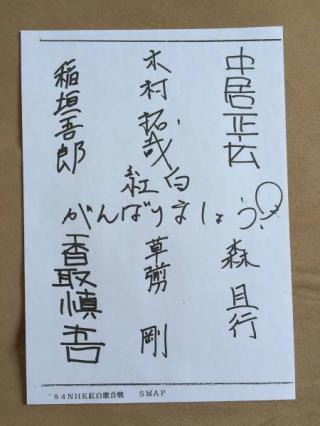 中居正広
木村拓哉
稲垣吾郎
紅白
がんばりましょう!
森且行
草彅剛
香取慎吾
'94NHK紅白歌合戦 SMAP